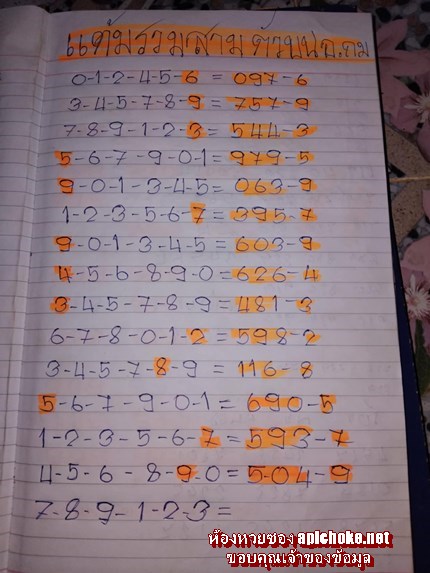 แต้มรวมสามตัวบนอ.ถม
0-1-2-4-5-6 = 097-6
3-4-5-7-8-9 = 757-9
7-8-9-1-2-3 = 544-3
5-6-7-9-0-1 = 979-5
9-0-1-3-4-5 = 063-9
1-2-3-5-6-7 = 395-7
9-0-1-3-4-5 = 603-9
4-5-6-8-9-0 = 626-4
3-4-5-7-8-9 = 481-3
6-7-8-0-1-2 = 598-2
3-4-5-7-8-9 = 116-8
5-6-7-9-0-1 = 690-5
1-2-3-5-6-7 = 593-7
4-5-6-8-9-0 = 504-9
7-8-9-1-2-3 =
ห้องหวยซอง apichoke.net
ขอบคุณเจ้าของข้อมูล